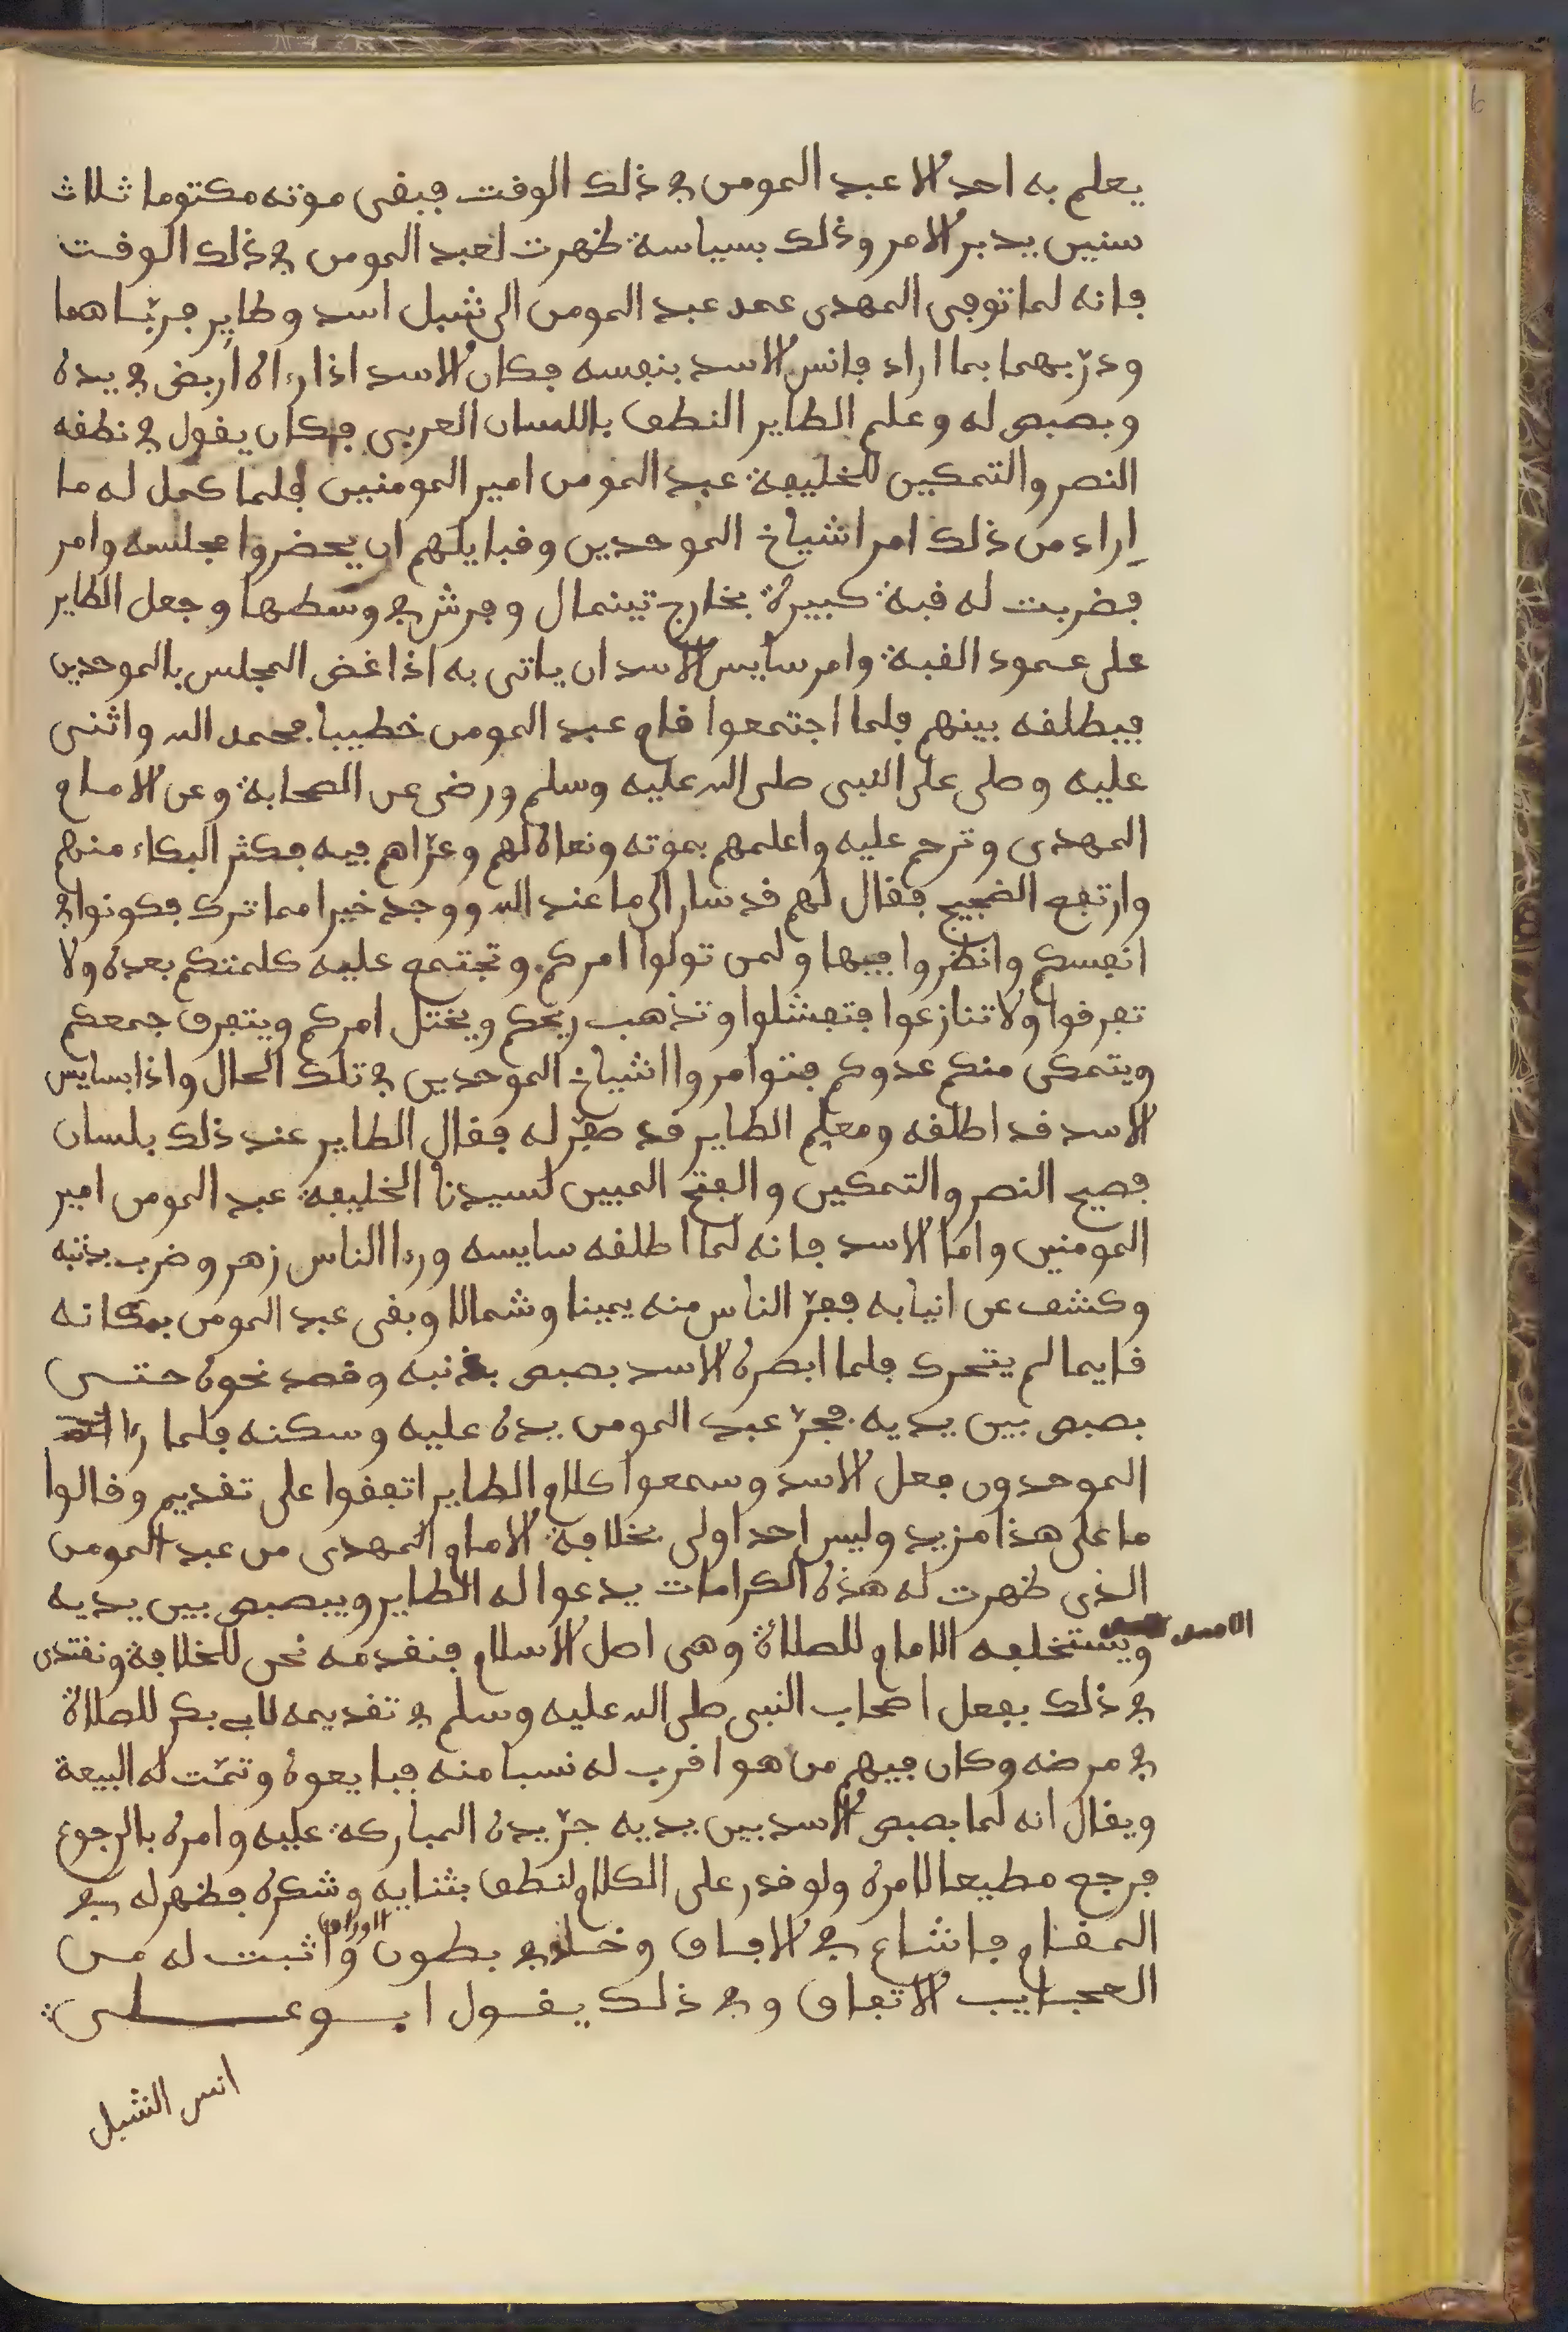 يعلم به احد الا عبد المومن في ذلك الوقت فبقى موته مكتوما ثلاث
سنين يدبر الامر وذلك بسياسة ظهرت لعبد المومن في ذلك الوقت
فانه لما توفي المهدى عمد عبد المومن الى شبل اسد وطاير فربّاهما
ودرّبهما بما اراد فانس الاسد بنفسه فكان الاسد اذا رءاه اربض في يده
وبصبص له وعلم الطاير النطق باللسان العربي فكان يقول في نطقه
النصر والتمكين للخليفة عبد المومن امير المومنين فلما كمل له ما
اراد من ذلك امر اشياخ الموحدين وقبايلهم ان يحضروا مجلسه وامر
فضربت له قبة كبيرة بخارج تينمال وفرش في وسطها وجعل الطاير
على عمود القبة وامر سايس الاسد ان ياتى به اذا غض المجلس بالموحدين
فيطلقه بينهم فلما اجتمعوا قام عبد المومن خطيبا فحمد الله واثنى
عليه وصلى على النبى صلى الله عليه وسلم ورضى عن الصحابة وعن الامام
المهدى وترحم عليه واعلمهم بموته ونعاه لهم وعزّاهم فيه فكثر البكاء منهم
وارتفع الضجيج فقال لهم قد سار الى ما عند الله ووجد خيرا مما ترك فكونوا في
انفسكم وانظروا فيها ولمن تولوا امركم وتجتمع عليه كلمتكم بعده ولا
تفرقوا ولا تنازعوا فتفشلوا وتذهب ريحكم ويختل امركم ويتفرق جمعكم
ويتمكى منكم عدوكم فتوامروا اشياخ الموحدين في تلك الحال واذا بسايس
الاسد قد اطلقه ومعلم الطاير قد صفّر له فقال الطاير عند ذلك بلسان
فصيح النصر والتمكين والفتح المبين لسيدنا الخليفة عبد المومن امير
المومنين واما الاسد فانه لما اطلقه سايسه ورءا الناس زهر وضرب بذنبه
وكشف عن انيابه ففرّ الناس منه يمينا وشمالا وبقى عبد المومن بمكانه
قايما لم يتحرك فلما ابصره الاسد بصبص بذنبه وقصد نحوه حتى
بصبص بين يديه فجرّ عبد المومن يده عليه وسكنه فلما رءا
الموحدون فعل الاسد وسمعوا كلام الطاير اتفقوا على تقديم وقالوا
ما على هذا مزيد وليس احد اولى بخلافة الامام المهدى من عبد المومن
الذى ظهرت له هذه الكرامات يدعوا له الطاير ويبصبص بين يديه
الاسد ويستخلفه الامام للصلاة وهى اصل الاسلام فنقدمه نحن للخلافة ونقتدى
في ذلك بفعل اصحاب النبى صلى الله عليه وسلم في تقديمه لابي بكر للصلاة
في مرضه وكان فيهم من هو اقرب له نسبا منه فبايعوه وتمّت له البيعة
ويقال انه لما بصبص الاسد بين يديه جرّ يده المباركة عليه وامره بالرجوع
فرجع مطيعا لامره ولو قدر على الكلام لنطق بثنايه وشكره فظهر له في
المقام فاشاع في الافاق وخلد في بطون الاوراق واثبت له من
العجايب الاتفاق وفي ذلك يقول ابو على
انس الشبل